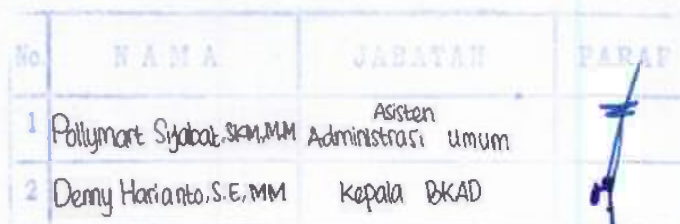 No. NAMA JABATAN PARAF
1 Pollymart Sijabat, SKM, M.M Asisten Administrasi Umum
2 Denny Harianto, S.E, MM Kepala BKAD